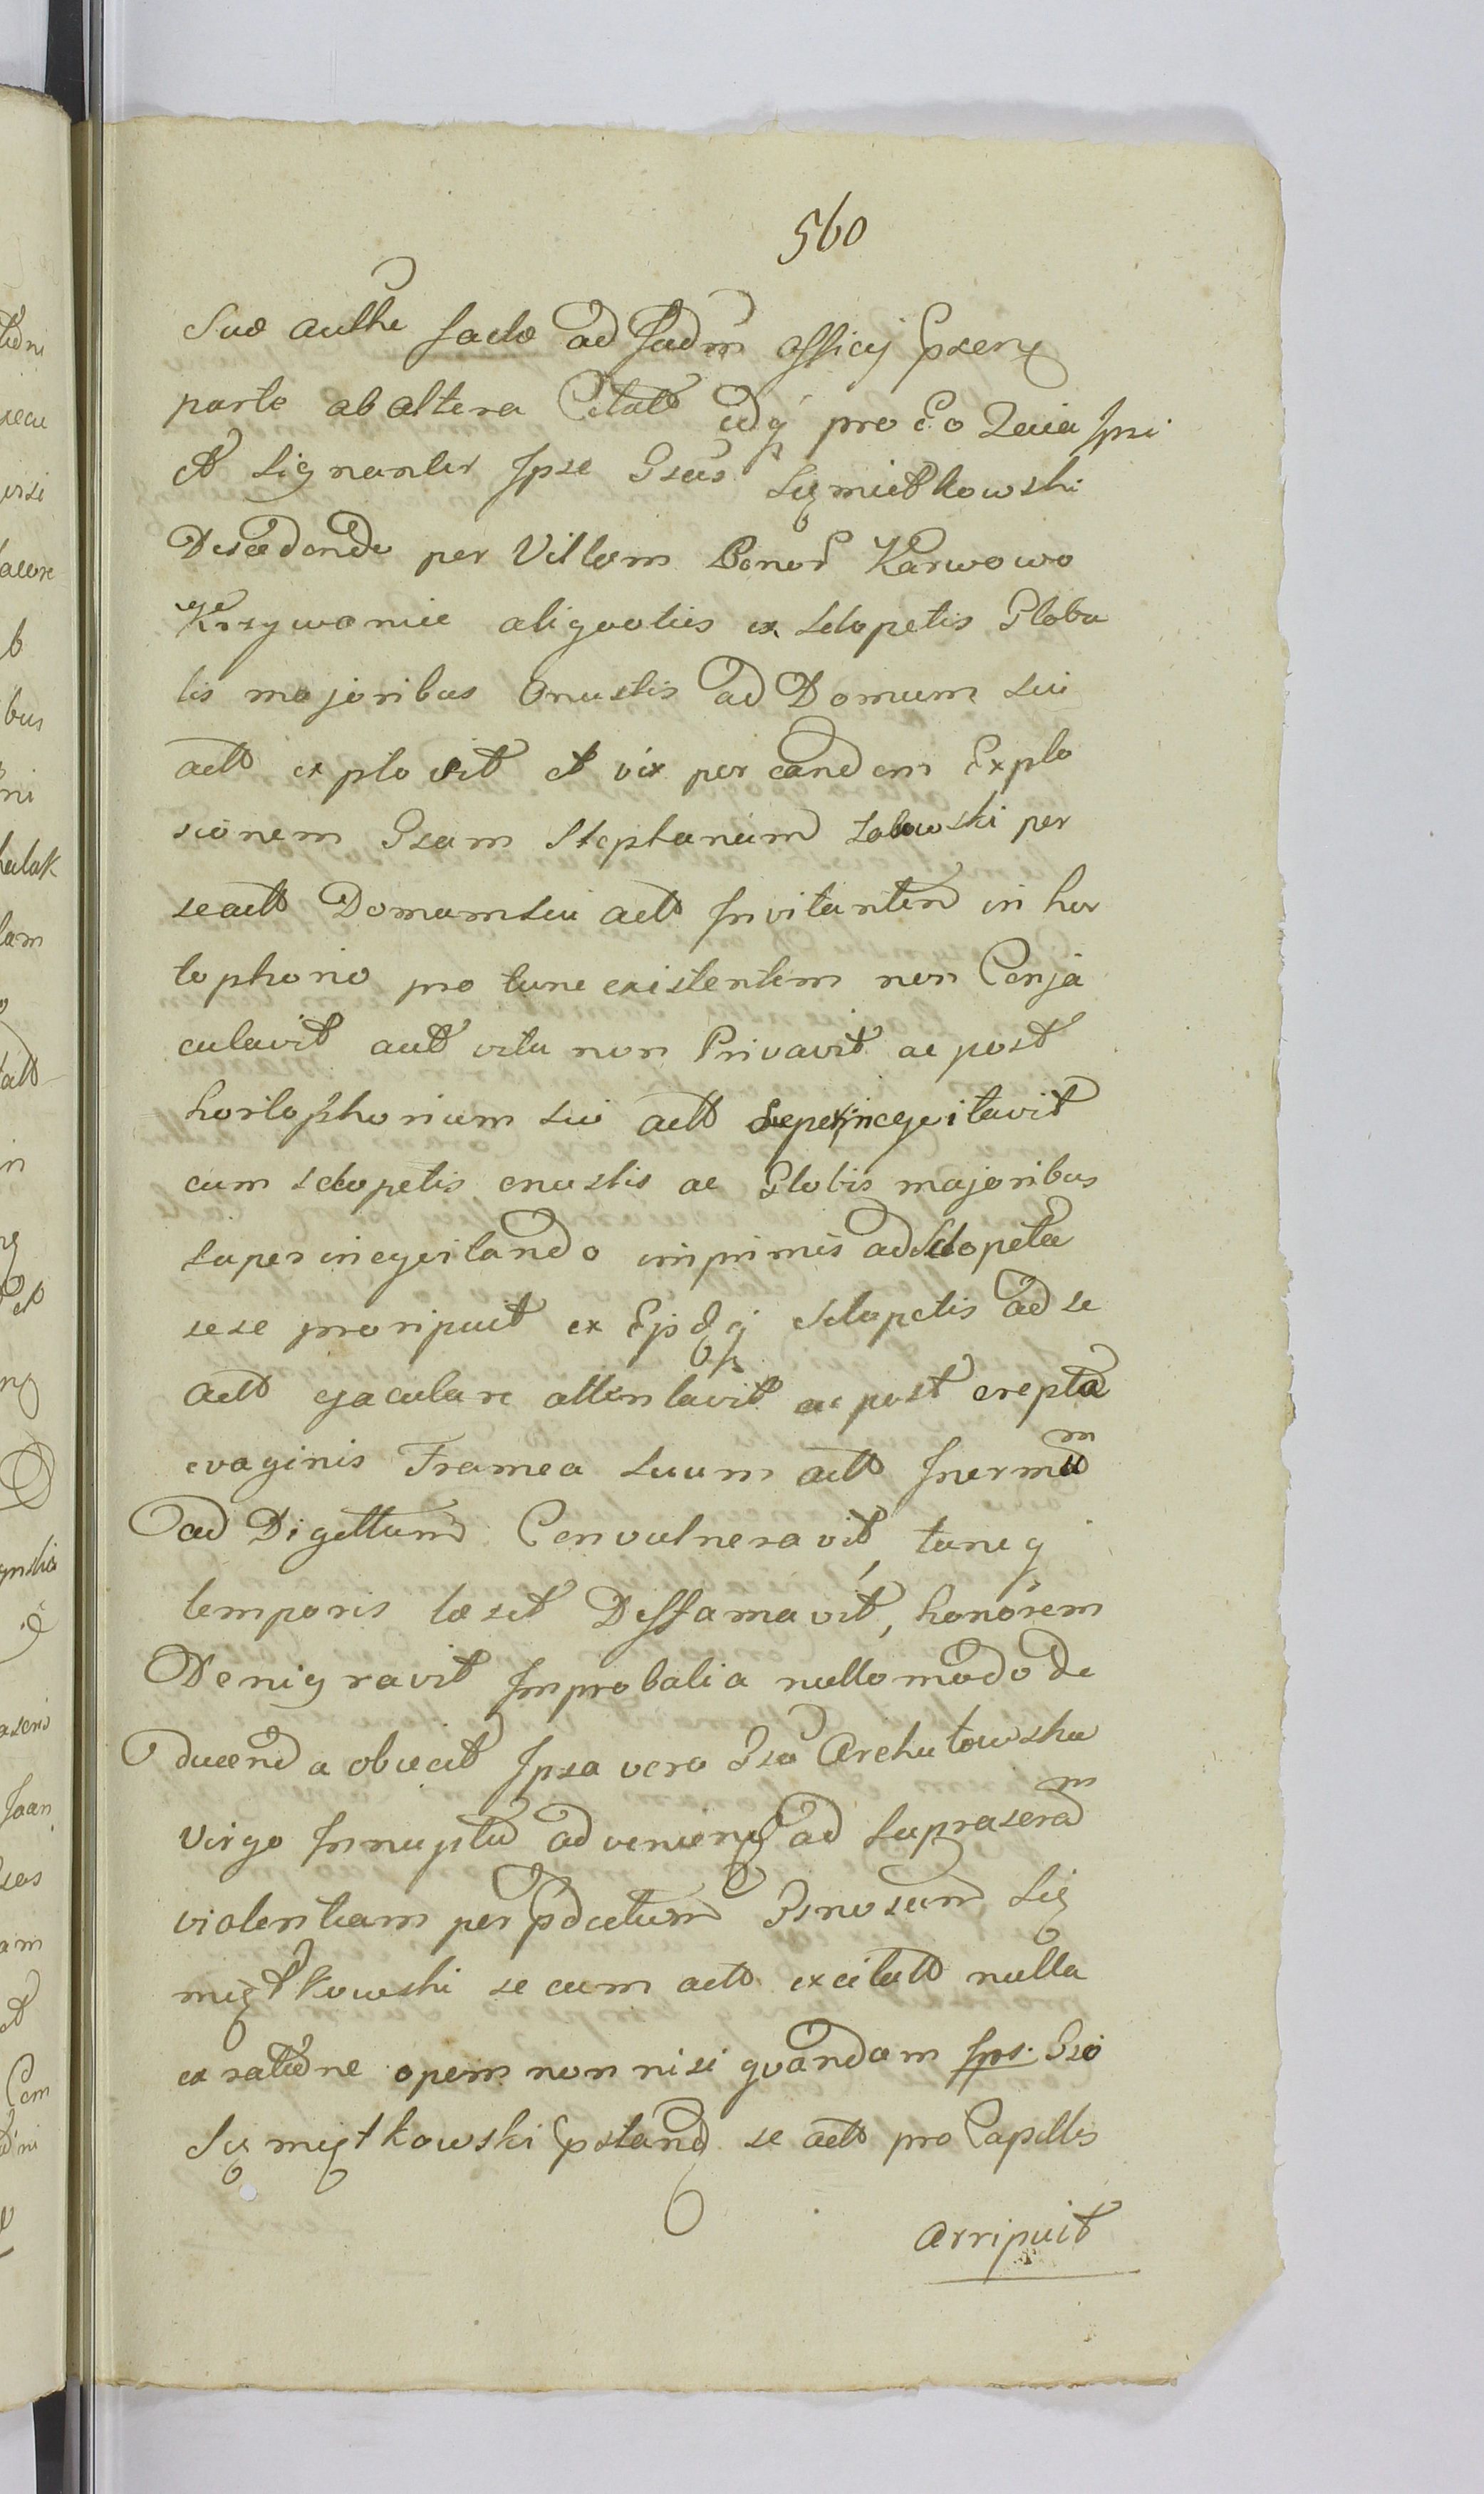 560
Suo authe facto ad Judm officij pseng
parte ab altera Citatt idq pro Eo Quia Ipsi
et signanter Ipse Gsus Szmietkowski
Discedendo per Villam Bonor Karwowo
Krzywanice aliqvoties ex sclopetis Globu
lis majoribus Onustis ad Domum sui
actt explosit et vix per eandem Explo
sionem Gsum Stephanum per
se actt Domum sui actt Invitantem in hor
tophorio pro tunc existentem non Conja
culavit aut vita non Privavit ac post
hortophorium sui actt superineqvitavit
cum sclopetis onustis ac Globis majoribus
superineqvitando inprimis ad Sclopeta
sese proripuit ex Ejsdq Sclopetis ad se
actt ejaculare attentavit ac post erepta
evaginis Framea suum actt Inermem
ad Digittum Convulneravit, tuncq
temporis læsit Deffamavit, honorem
Denigravit Improbalia nullo modo de
ducenda obiecit Ipsa vero Gsa Archutowska
Virgo Innupta adveniens ad supraseram
violentiam per pdictum Gnosum Sz
miętkowski secum actt excitatt nulla
ex ratione opem non nisi qvandam Ips. Gso
Szmiętkowski pstand se actt pro Capillis
arripuit